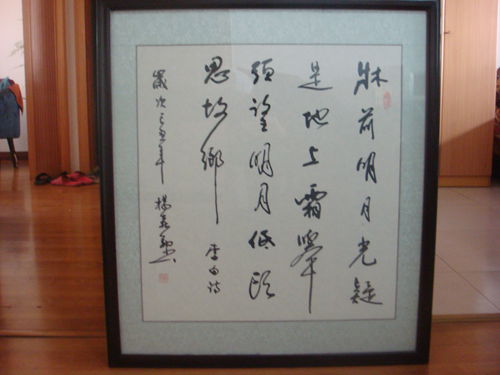 牀前明月光疑
是地上霜舉
頭望明月低頭
思故鄉 李白詩
歲次己丑年 楊